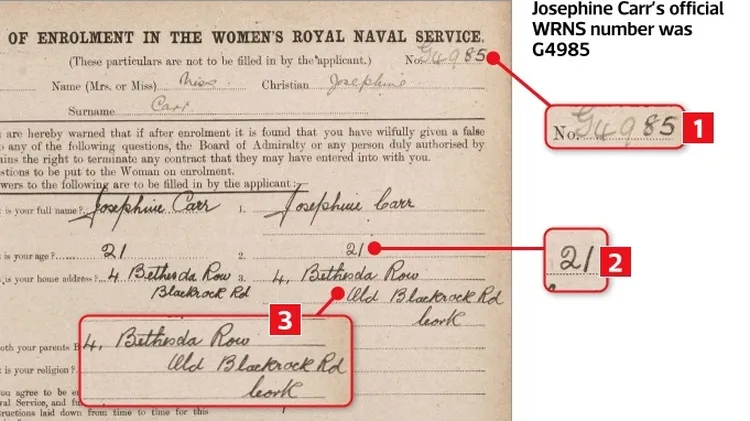 Josephine Carr's official
WRNS number was
G4985
OF ENROLMENT IN THE WOMEN'S ROYAL NAVAL SERVICE.
(These particulars are not to be filled in by the applicant.) No. G4985
Name (Mrs. or Miss) Miss Christian Josephine
Surname Carr
No. G4985 1
are hereby warned that if after enrolment it is found that you have wilfully given a false
any of the following questions, the Board of Admiralty or any person duly authorised by
the right to terminate any contract that they may have entered into with you.
to be put to the Woman on enrolment.
to the following are to be filled in by the applicant:
is your full name? Josephine Carr 1. Josephine Carr
is your age? 21 2. 21
21 2
is your home address? 4 Bethesda Row 3. 4, Bethesda Row
Blackrock Rd Old Blackrock Rd
Cork
3
4, Bethesda Row
Old Blackrock Rd
Cork
your parents B
is your religion?
you agree to be
Service, and
laid down from time to time for this